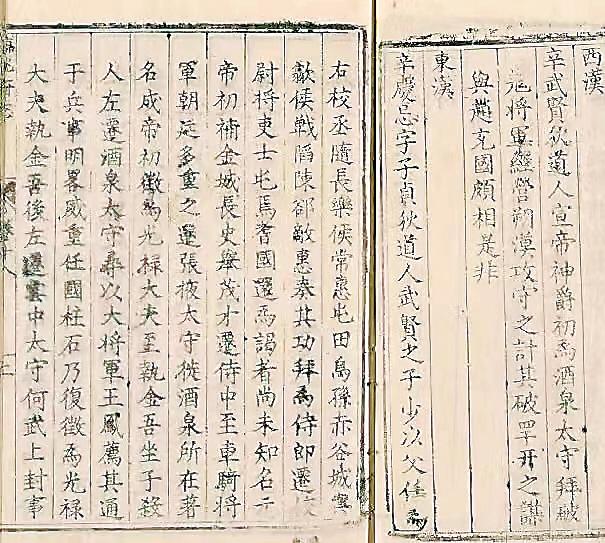 西漢
辛武賢狄道人宣帝神爵初為酒泉太守拜破
羌將軍經營朔漠攻守之計其破罕幵之謀
與趙充國頗相是非
東漢
辛慶忌字子貞狄道人武賢之子少以父任為
右校丞隨長樂侯常惠屯田烏孫赤谷城與
歙侯戰陷陳郤敵惠奏其功拜為侍郎遷校
尉將吏士屯焉耆國還為謁者尚未知名元
帝初補金城長史舉茂才遷侍中至車騎將
軍朝廷多重之還張掖太守徙酒泉所在著
名成帝初徵為光祿大夫至執金吾坐子殺
人左遷酒泉太守尋以大將軍王鳳薦其通
于兵事明畧威重任國柱石乃復徵為光祿
大夫執金吾後左遷雲中太守何武上封事